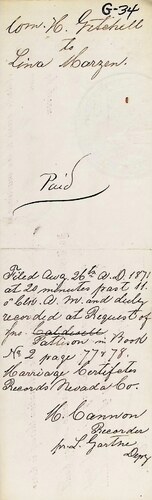 G-34
Wm. H. Getchell
to
Lina Marzen.
Paid
Filed Aug. 26th A.D. 1871
at 20 minutes past 11.
o'clk. A. M. and duly
recorded at Request of
Jno. Caldwell
Pattison in Book
No 2 page 77 & 78.
Marriage Certifates
Records Nevada Co.
H. Cannon
Recorder
pr L. Garthe
Depy